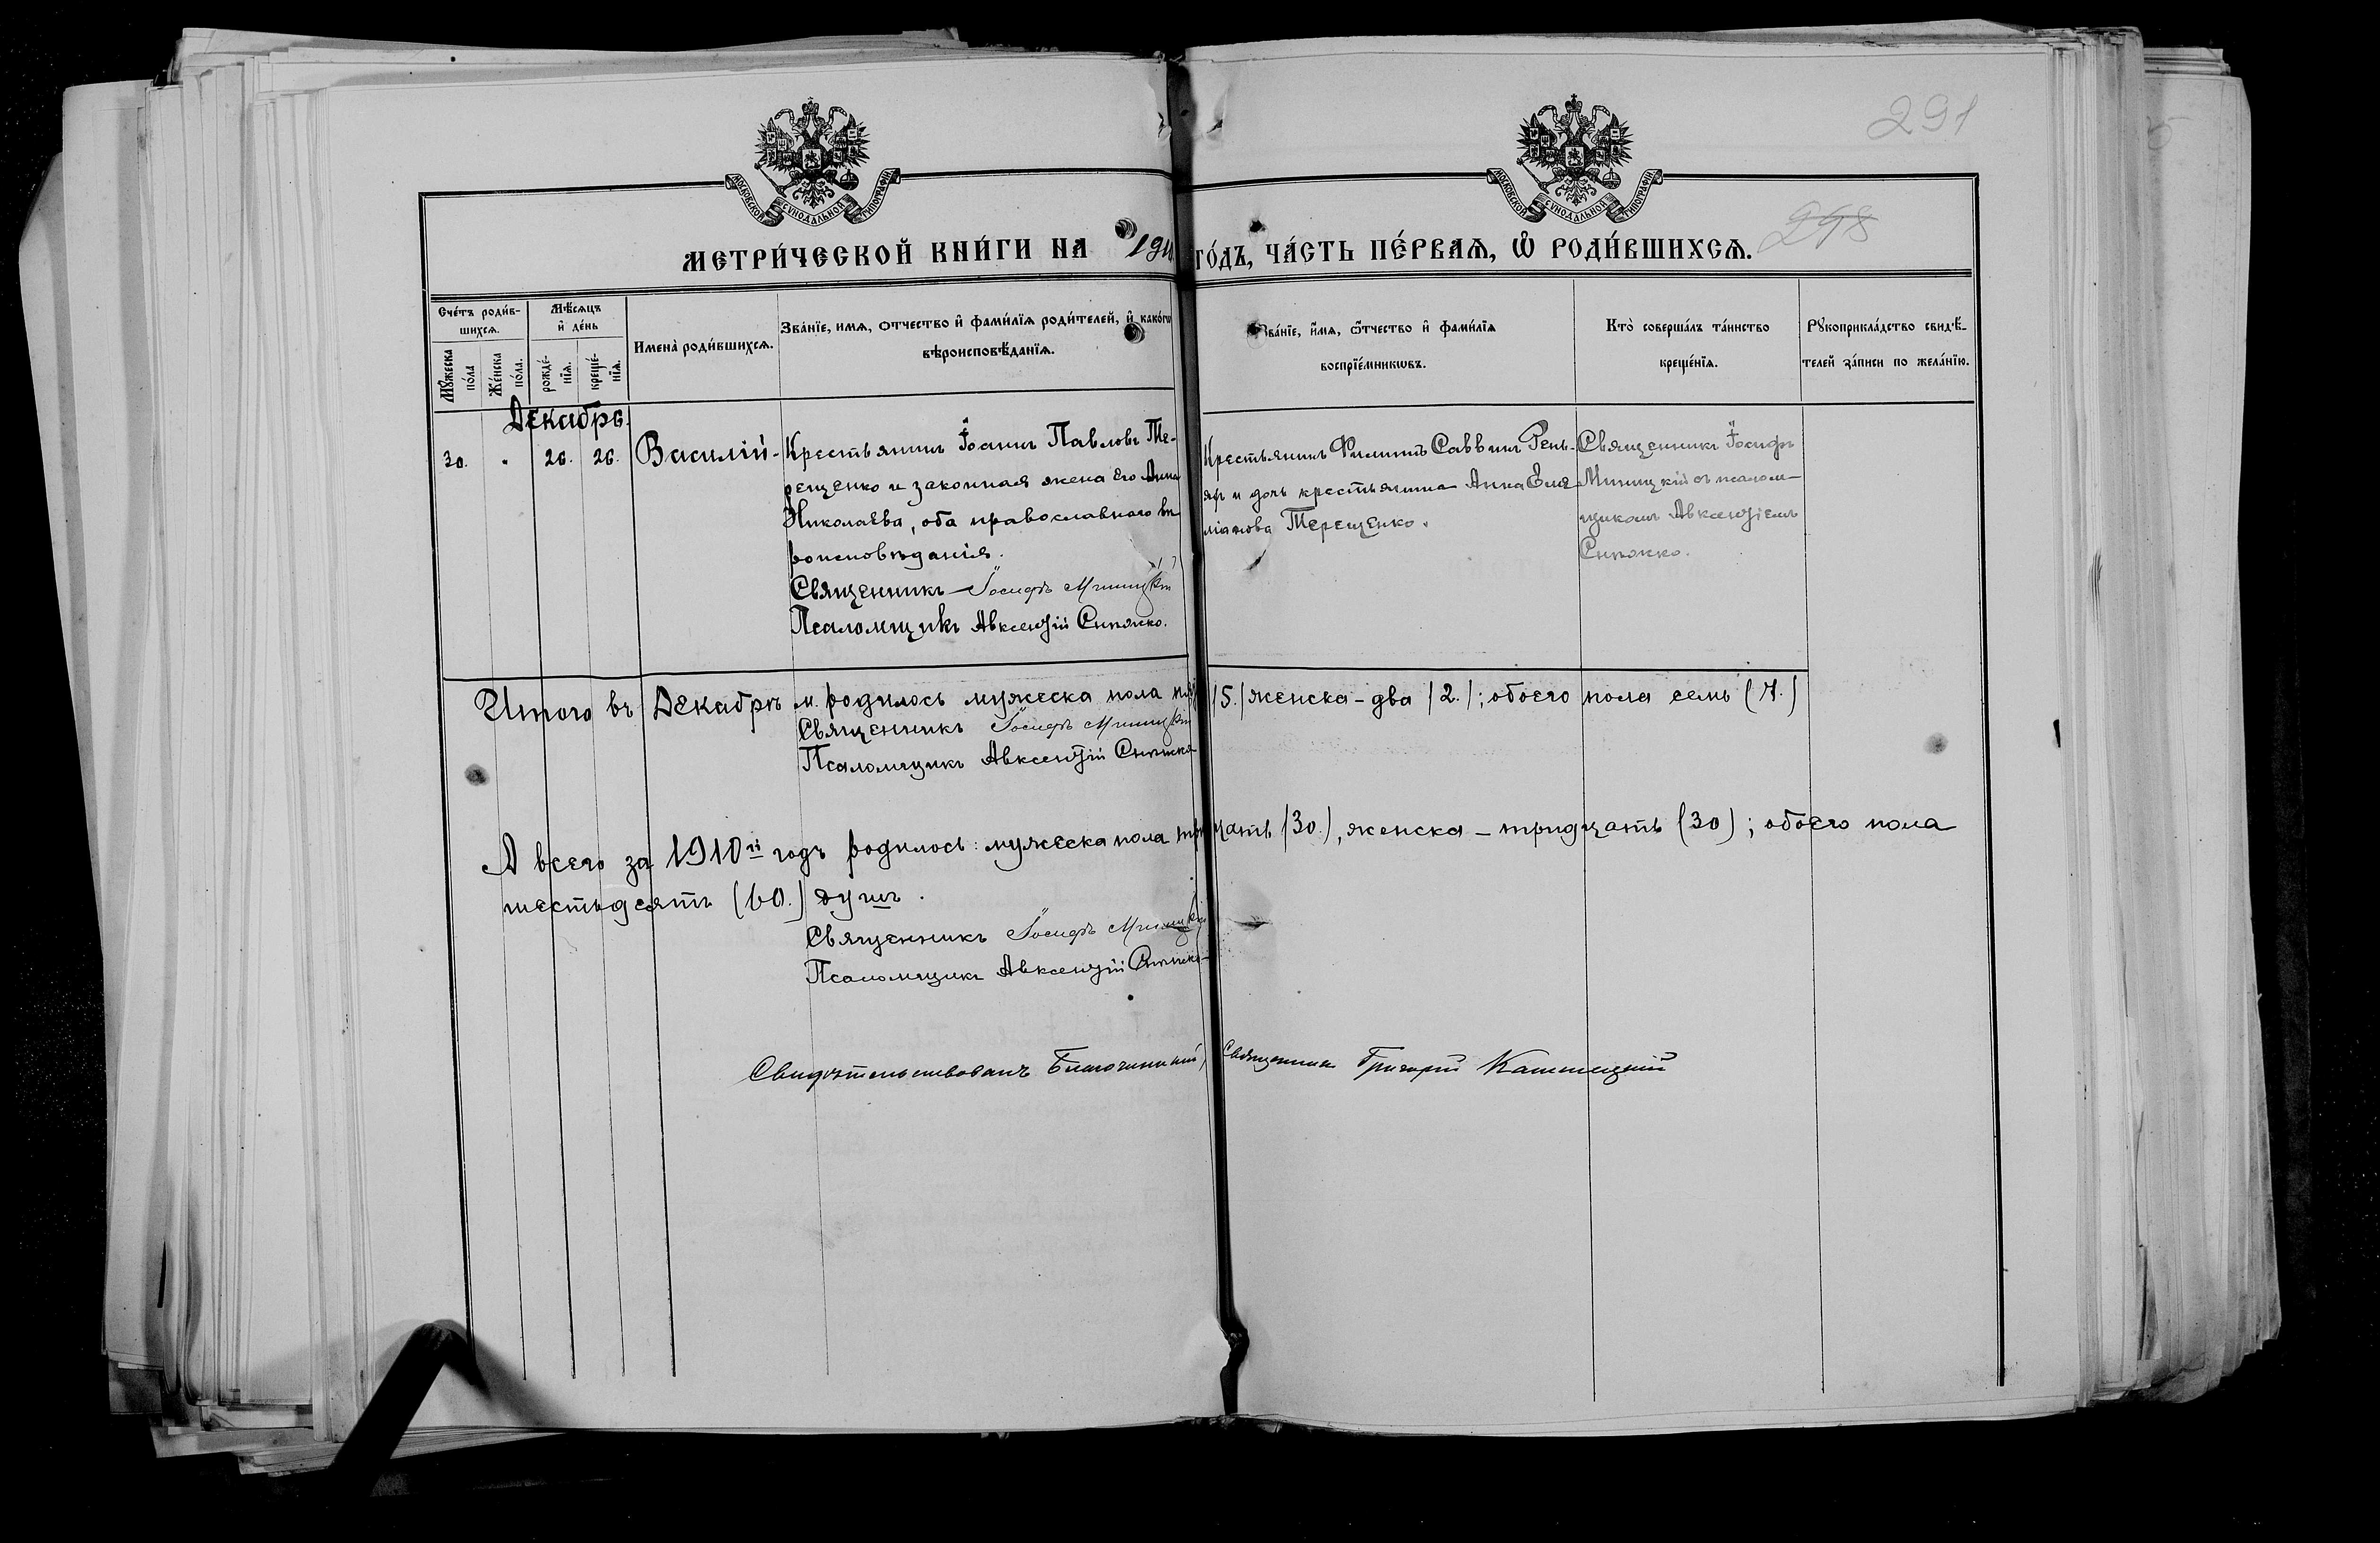 291
МОСКОВСКОЙ СѴНОДАЛЬНОЙ ТИПОГРАФІИ
МОСКОВСКОЙ СѴНОДАЛЬНОЙ ТИПОГРАФІИ
298
МЕТРИ́ЧЕСКОЙ КНИ́ГИ НА 1910 ГО́ДЪ, ЧА́СТЬ ПЕ́РВАѦ, Ѡ҆ РОДИ́ВШИХСѦ.
Сче́тъ роди́в-
шихсѧ.
Мꙋ́жеска по́ла
Же́нска по́ла.
Мѣ́сѧцъ
и҆ де́нь
рожде́-
нїѧ.
креще́-
нїѧ.
Имена̀ роди́вшихсѧ.
Зва́нїе, имѧ, отчество и҆ фами́лїѧ роди́телей, и҆ како́гѡ
вѣроисповѣ́данїѧ.
Зва́нїе, и҆́мѧ, ѻ҆́тчество и҆ фами́лїѧ
воспрїе́мникѡвъ.
Кто̀ соверша́лъ та́инство
креще́нїѧ.
Рꙋкоприкла́дство свидѣ́-
телей за́писи по жела́нїю.
Декабрь.
30. " 26. 26. Василій-
Крестьянинъ Іоаннъ Павловъ Те-
рещенко и законная жена его Анна
Николаева, оба православнаго вѣ
роисповѣданія.
Священникъ Іосифъ
Псаломщикъ Авксентій
Крестьянинъ Филиппъ Саввинъ
и дочь крестьянина Анна
Терещенко.
Священникъ Іосифъ
съ псалом-
щикомъ Авксентіемъ
Итого въ Декабрѣ м. родилось мужеска пола пять (5.) женска - два (2.); обоего пола семь (7.)
Священникъ Іосифъ
Псаломщикъ Авксентій
А всего за 1910й годъ родилось: мужеска пола тридцать (30.), женска - тридцать (30); обоего пола
шестьдесятъ (60.) душъ.
Священникъ Іосифъ
Псаломщикъ Авксентій
Свидѣтельствовалъ Благочинный, Священникъ Григорій